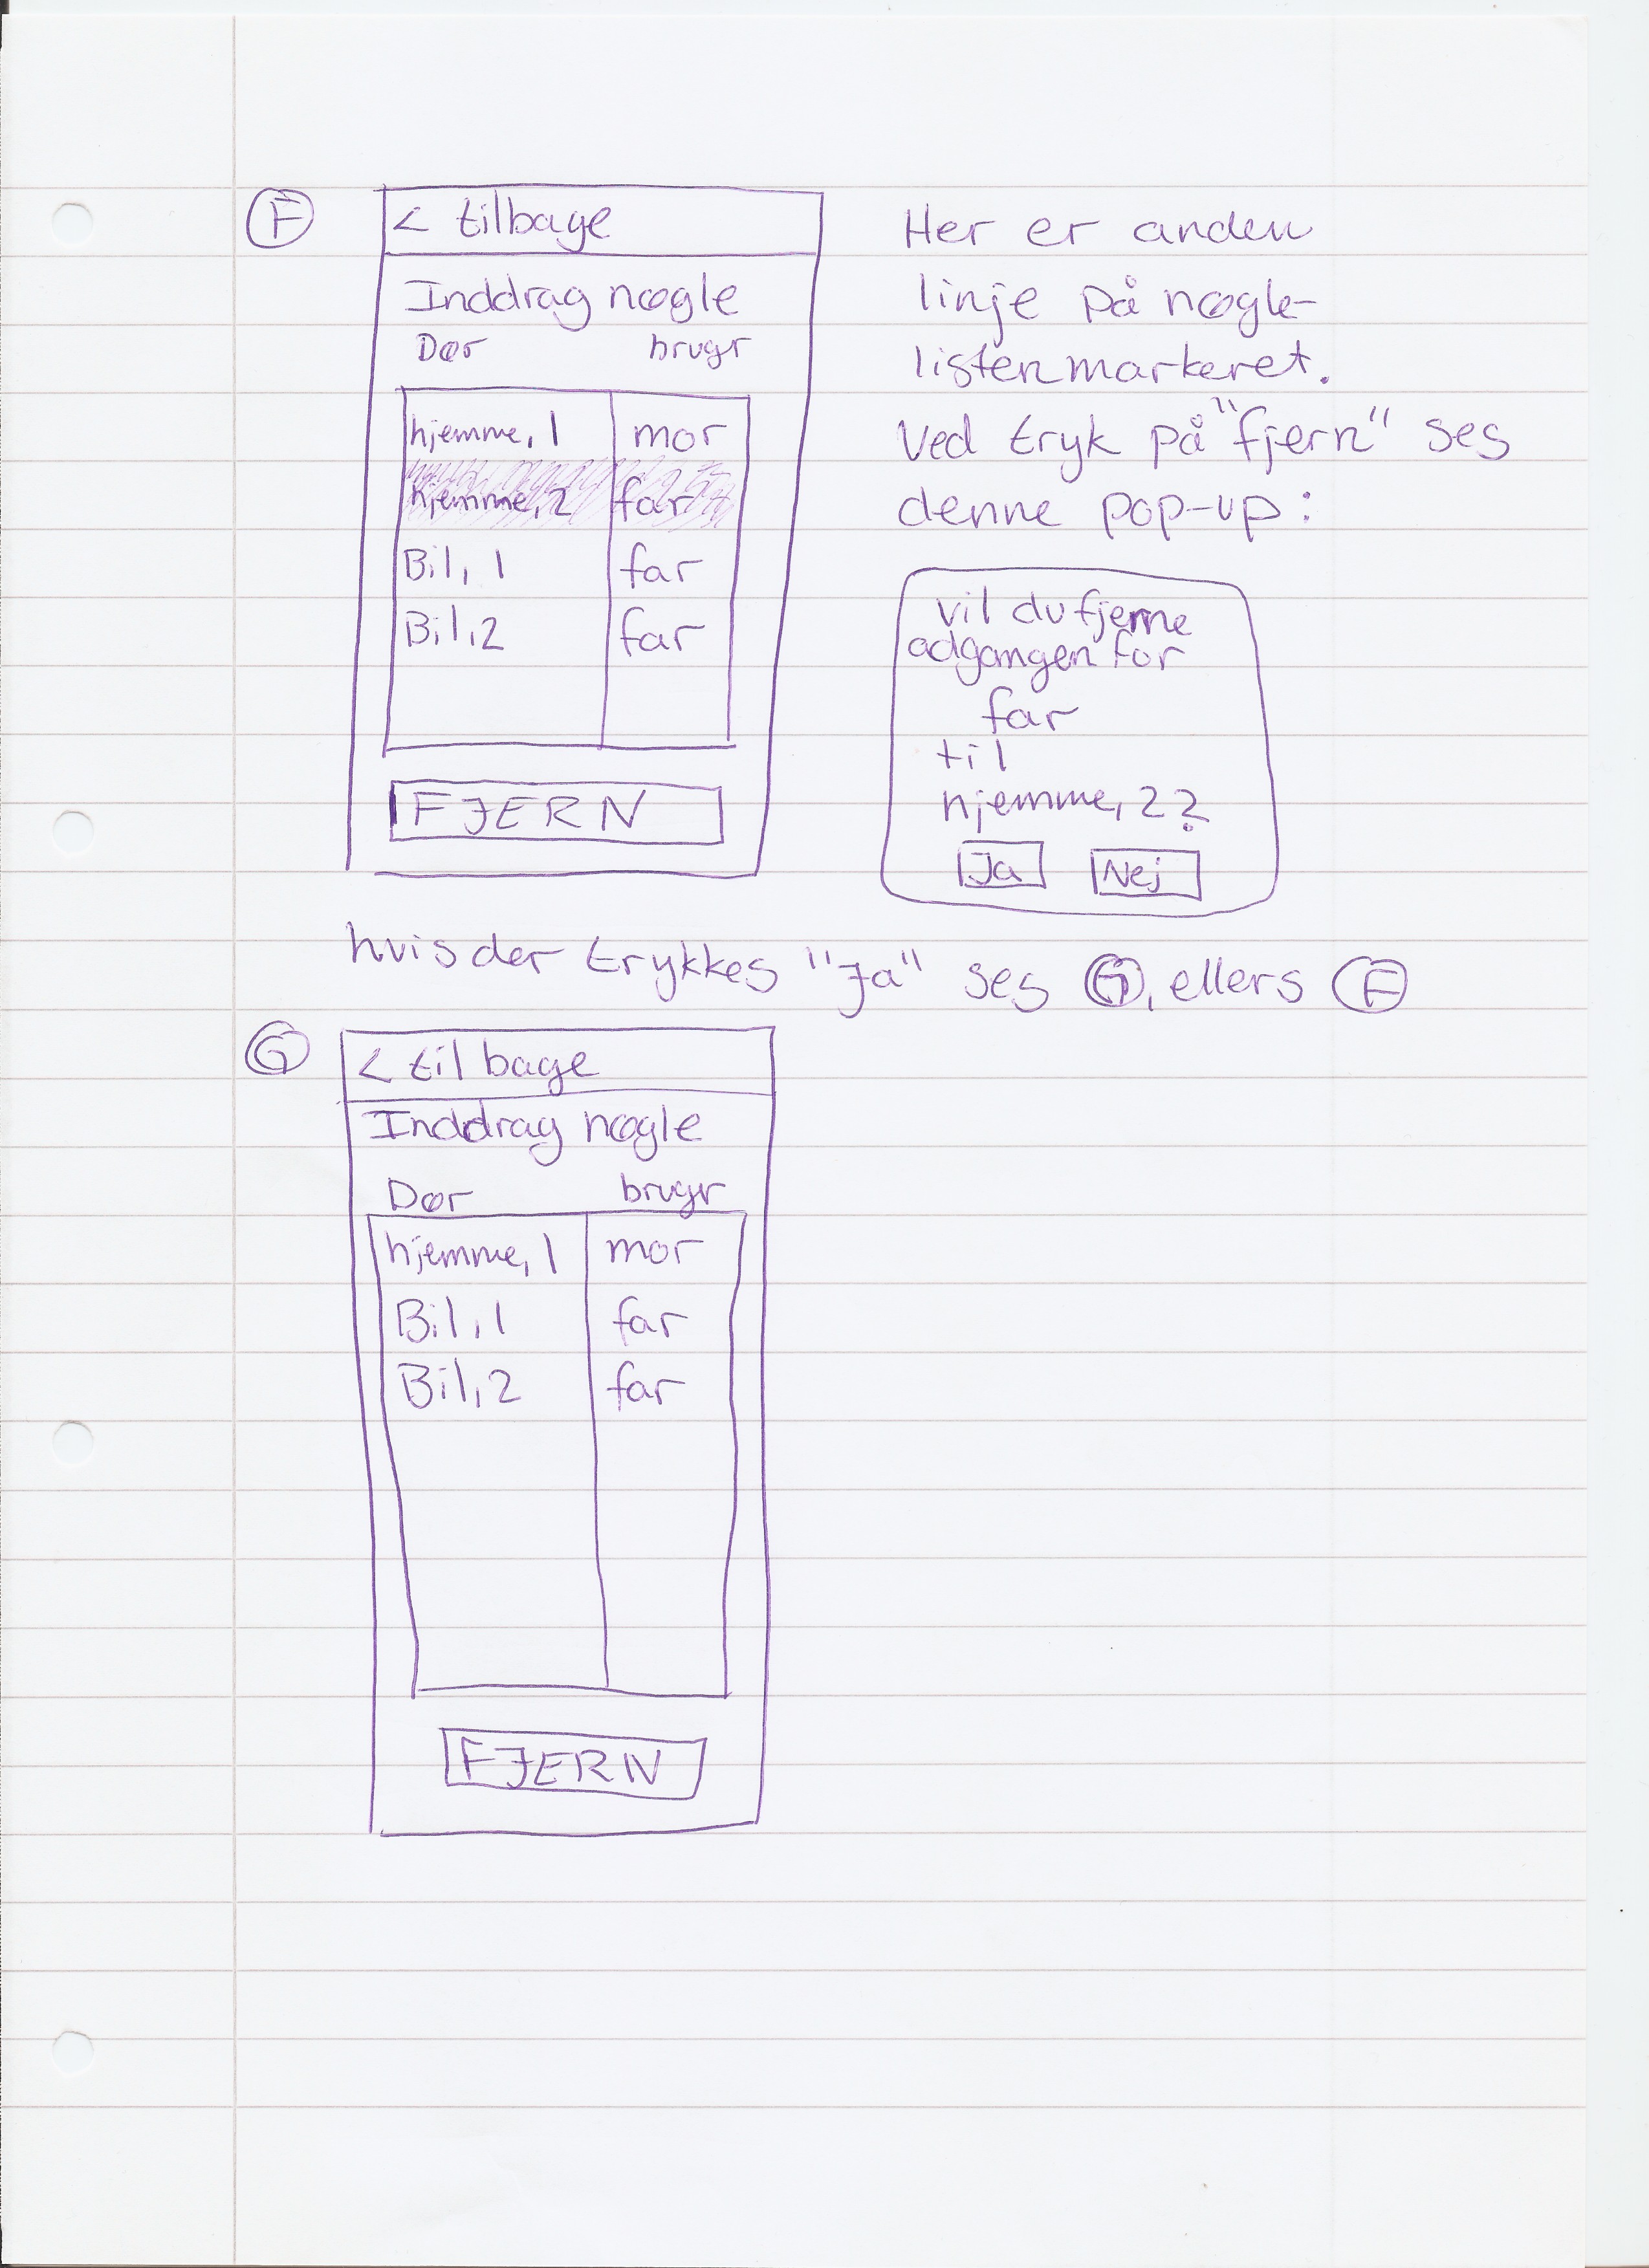 F
< tilbage
Inddrag nøgle
Dør brugr
hjemme, 1 mor
hjemme, 2 far
Bil, 1 far
Bil, 2 far
FJERN
Her er anden
linje på nøgle-
listen markeret.
Ved tryk på "fjern" ses
denne pop-up:
vil du fjerne
adgangen for
far
til
hjemme, 2?
Ja Nej
hvis der trykkes "Ja" ses G, ellers F
G
< tilbage
Inddrag nøgle
Dør brugr
hjemme, 1 mor
Bil, 1 far
Bil, 2 far
FJERN